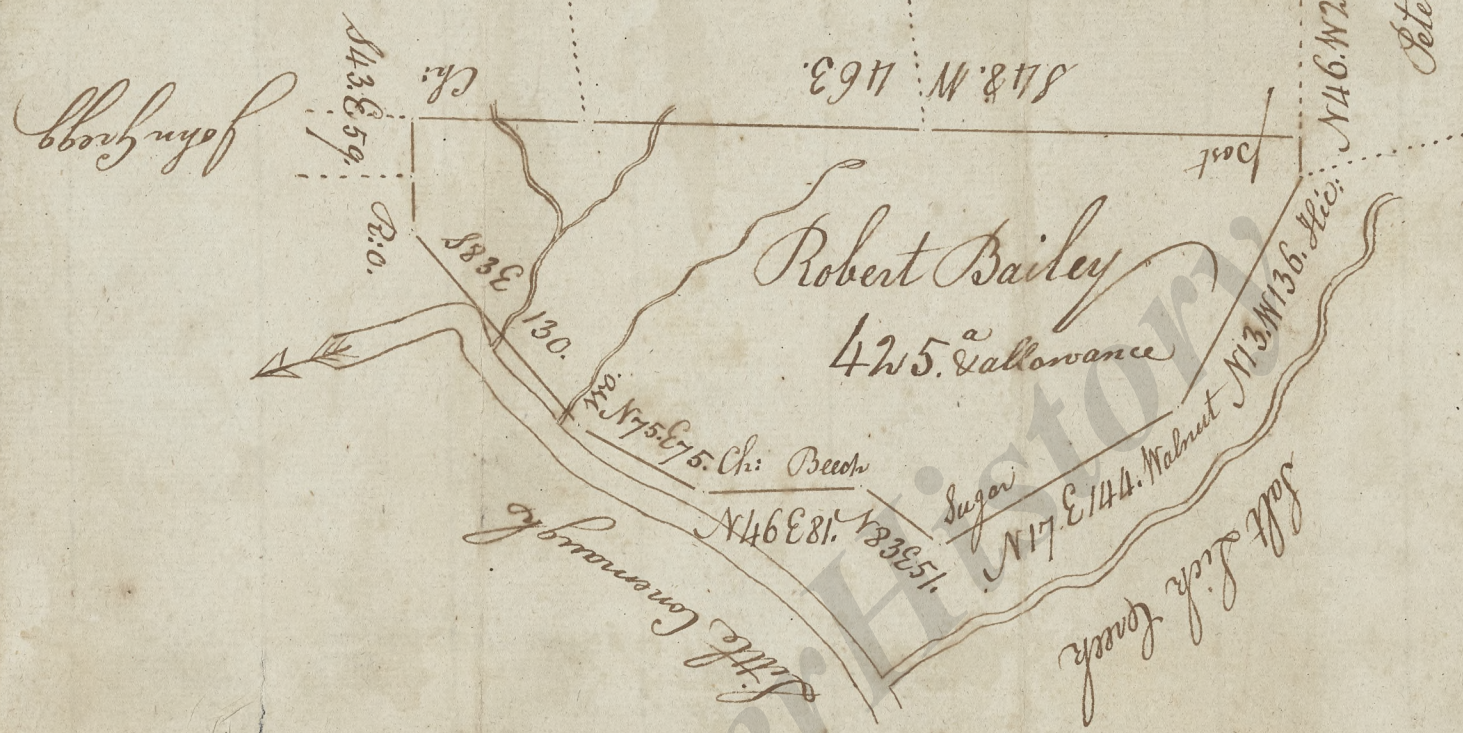 John Gregg
S43.E59.
Ch:
S48.W 463.
post
N46.W2
Pete
R:O.
S83E
130.
Robert Bailey
425.a &allowance
N13.W136. Hic:
W:O.
N75.E75.
Ch: Beech
N49E81.
N83E51.
Sugar
N17.E144. Walnut
Little Conemaugh
Salt Lick Creek
er History